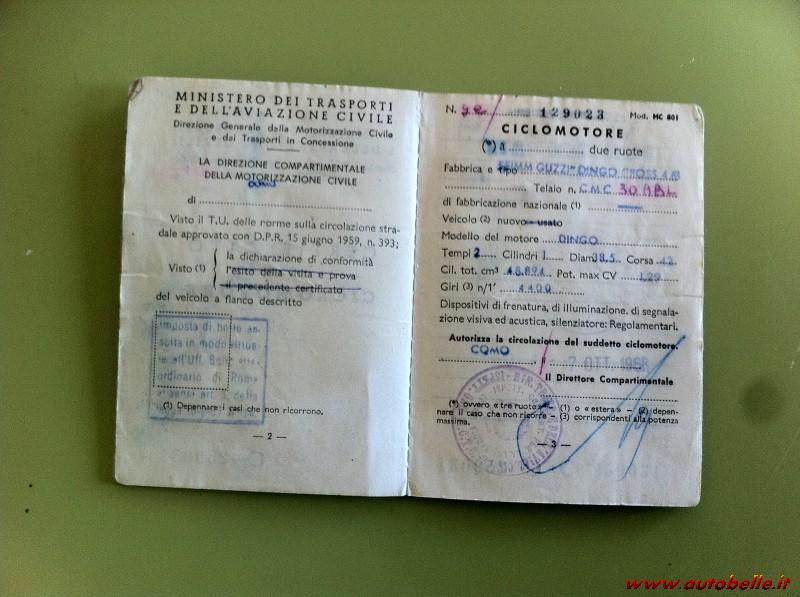 MINISTERO DEI TRASPORTI
E DELL'AVIAZIONE CIVILE
Direzione Generale della Motorizzazione Civile
e dei Trasporti in Concessione
LA DIREZIONE COMPARTIMENTALE
DELLA MOTORIZZAZIONE CIVILE
di COMO
Visto il T.U. delle norme sulla circolazione stra-
dale approvato con D.P.R. 15 giugno 1959, n. 393;
Visto (1)
la dichiarazione di conformità
l'esito della visita e prova
il precedente certificato
del veicolo a fianco descritto
imposta di bollo as-
solta in modo virtuale
all'Uff.
ordinario di Roma
ai sensi art.
(1) Depennare i casi che non ricorrono.
— 2 —
N. 129023 Mod. MC 801
CICLOMOTORE
(*) a due ruote
Fabbrica e tipo GUZZI "DINGO CROSS 4
Telaio n. CMC
di fabbricazione nazionale (1)
Veicolo (2) nuovo - usato
Modello del motore DINGO
Tempi 2 Cilindri 1 Diam 38,5 Corsa 42
Cil. tot. cm³ 48,894 Pot. max CV 1,29
Giri (3) n/1' 4400
Dispositivi di frenatura, di illuminazione, di segnala-
zione visiva ed acustica, silenziatore: Regolamentari.
Autorizza la circolazione del suddetto ciclomotore.
COMO, lì 7 OTT 1968
Il Direttore Compartimentale
(*) ovvero «tre ruote» - (1) o «estera» - (2) depen-
nare il caso che non ricorre - (3) corrispondenti alla potenza
massima.
— 3 —
www.autobelle.it